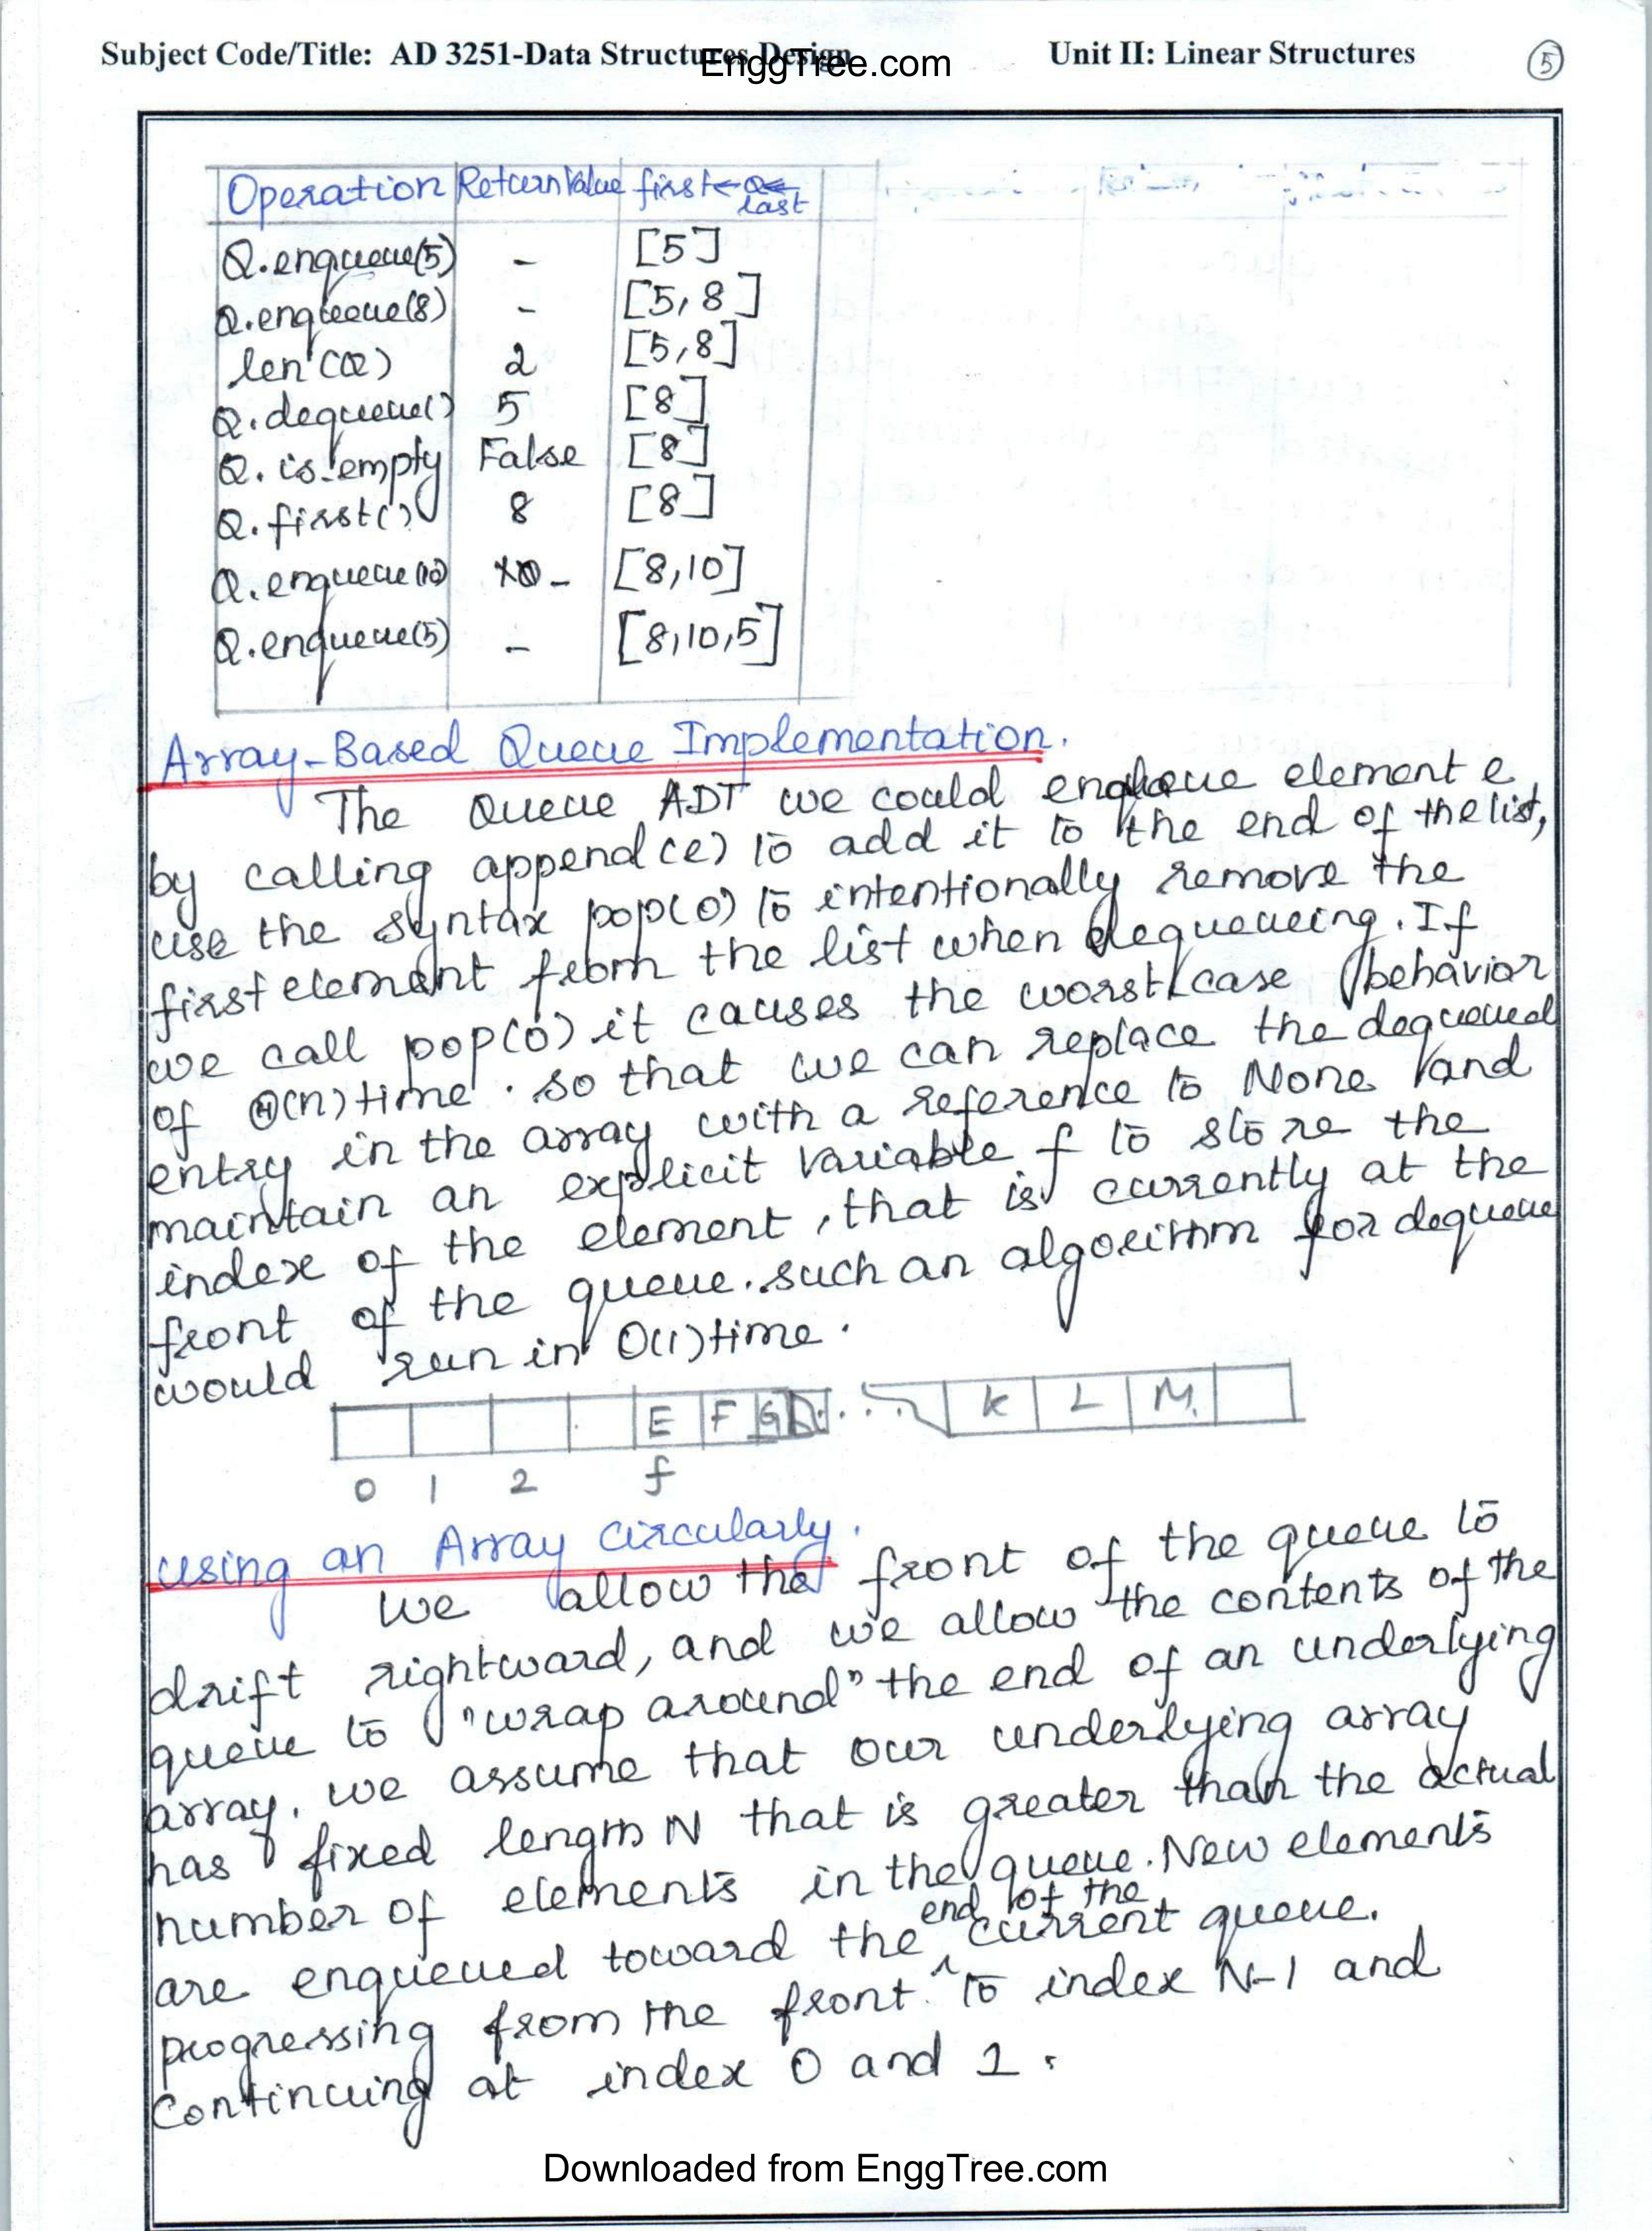 Subject Code/Title: AD 3251-Data Structures Design Unit II: Linear Structures 5
EnggTree.com
Operation Return Value first← Q← last
Q.enqueue(5) - [5]
Q.enqueue(8) - [5,8]
len(Q) 2 [5,8]
Q.dequeue() 5 [8]
Q.is_empty False [8]
Q.first() 8 [8]
Q.enqueue(10) - [8,10]
Q.enqueue(5) - [8,10,5]
Array-Based Queue Implementation.
The Queue ADT we could enqueue element e
by calling append(e) to add it to the end of the list,
use the syntax pop(0) to intentionally remove the
first element from the list when dequeueing. If
we call pop(0) it causes the worst case behavior
of Θ(n) time. so that we can replace the dequeued
entry in the array with a reference to None and
maintain an explicit variable f to store the
index of the element, that is currently at the
front of the queue. such an algorithm for dequeue
would run in O(1) time.
E F G ... K L M
0 1 2 f
using an Array circularly.
We allow the front of the queue to
drift rightward, and we allow the contents of the
queue to "wrap around" the end of an underlying
array. we assume that our underlying array
has fixed length N that is greater than the actual
number of elements in the queue. New elements
are enqueued toward the end of the current queue.
progressing from the front to index N-1 and
continuing at index 0 and 1.
Downloaded from EnggTree.com